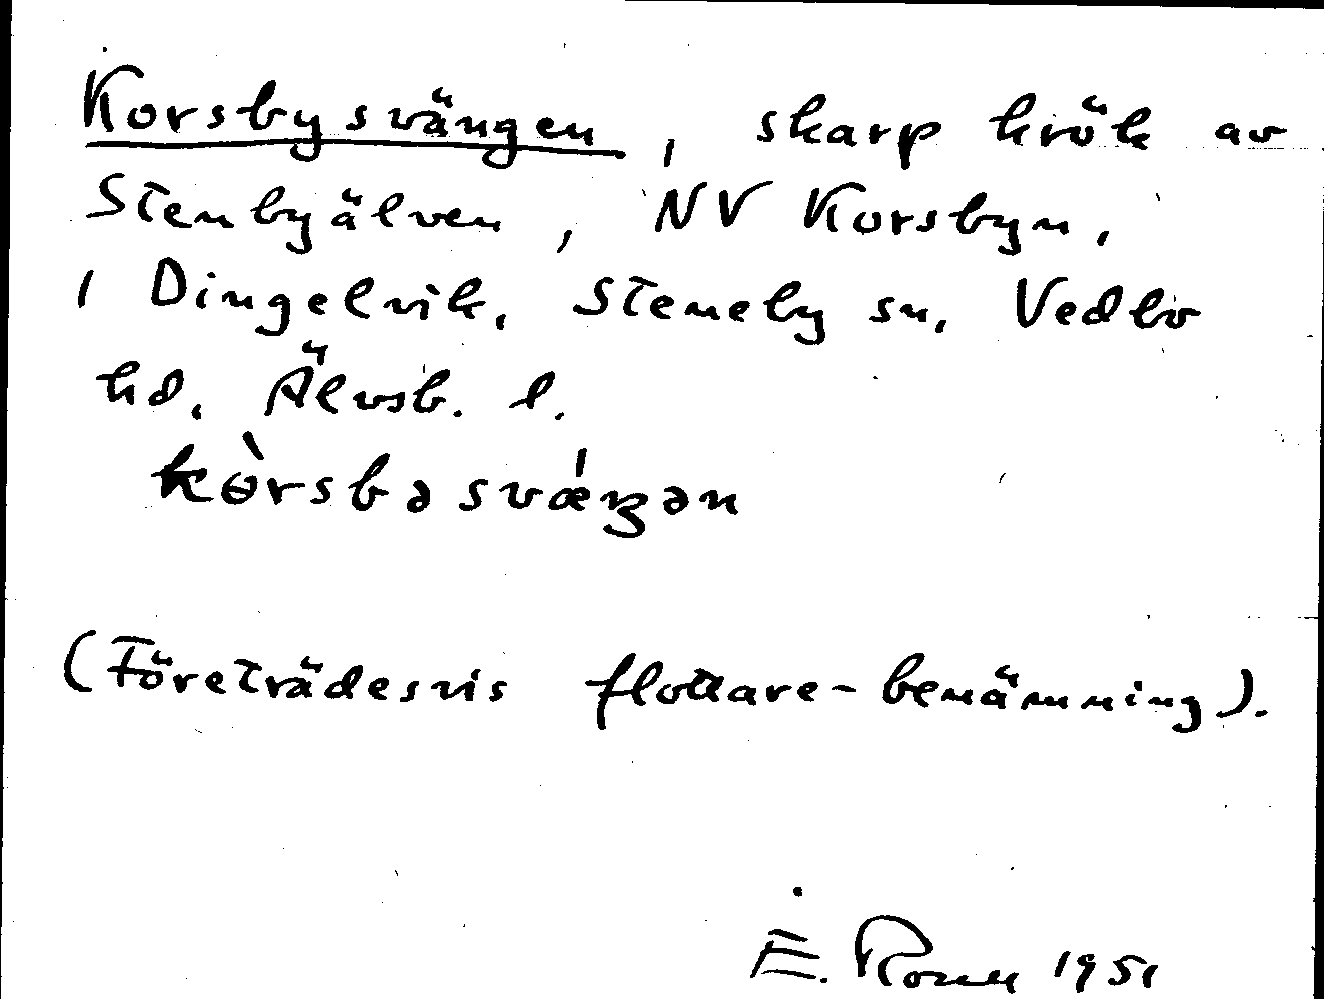 Korsbysvängen, skarp krök av
Stenbyälven, NV Korsbyn,
i Dingelvik, Steneby sn, Vedbo
hd, Älvsb. l.
kɵ̀rsbəsvǽŋən
(Företrädesvis flottare-benämning).
E. Rosell 1951